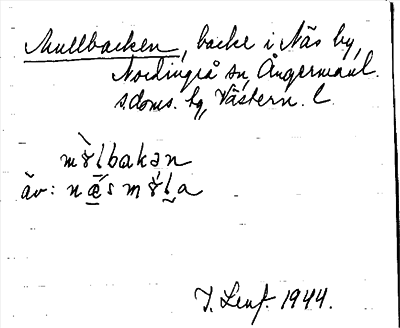 Mullbacken, backe i Näs by,
Nordingrå sn, Ångermanl.
sdoms. hg, Västern. l.
mɤ̀lbakən
äv: næ̀s mɤ́l̬a
J. Lenf. 1944.